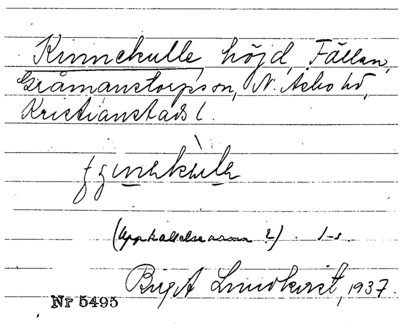 Kinnekulle, höjd, Fällan,
Gråmanstorps sn, N. Åsbo hd,
Kristianstads l.
(Uppkallelsenamn?).
Birgit Lundkvist, 1937.
Nr 5495